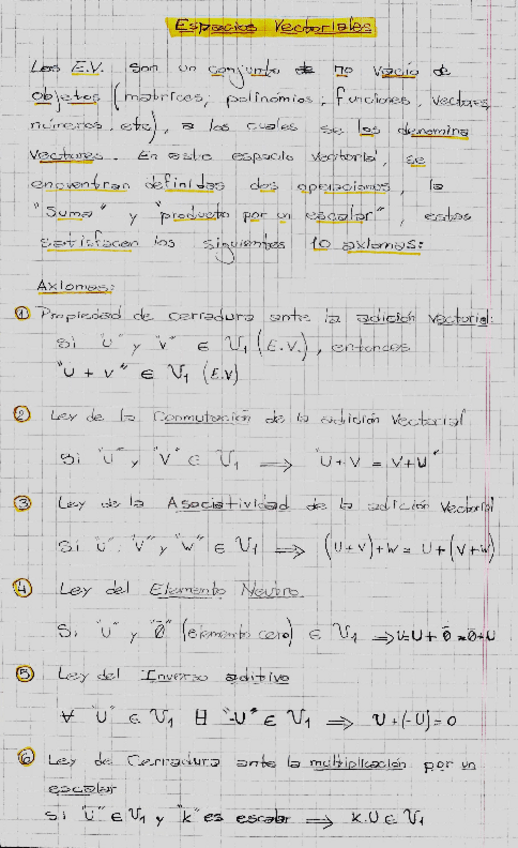 Espacios Vectoriales
Los E.V. son un conjunto no vacío de
objetos (matrices, polinomios, funciones, vectores,
números, etc), a los cuales se los denomina
vectores. En este espacio vectorial, se
encuentran definidas dos operaciones, la
"Suma" y "producto por un escalar", estas
satisfacen los siguientes 10 axiomas:
Axiomas:
① Propiedad de cerradura ante la adición vectorial:
Si "U" y "V" ∈ V₁ (E.V.), entonces
"U + V" ∈ V₁ (E.V)
② Ley de la Conmutación de la adición Vectorial
Si "U" y "V" ∈ V₁ ⟹ "U+V = V+U"
③ Ley de la Asociatividad de la adición Vectorial
Si "U", "V" y "W" ∈ V₁ ⟹ (U+V)+W = U+(V+W)
④ Ley del Elemento Neutro
Si "U" y "0̄" (elemento cero) ∈ V₁ ⟹ U=U+0̄=0̄+U
⑤ Ley del Inverso aditivo
∀ "U" ∈ V₁ ∃ "-U" ∈ V₁ ⟹ U+(-U)=0
⑥ Ley de Cerradura ante la multiplicación por un
escalar
Si "U" ∈ V₁ y "k" es escalar ⟹ K.U ∈ V₁